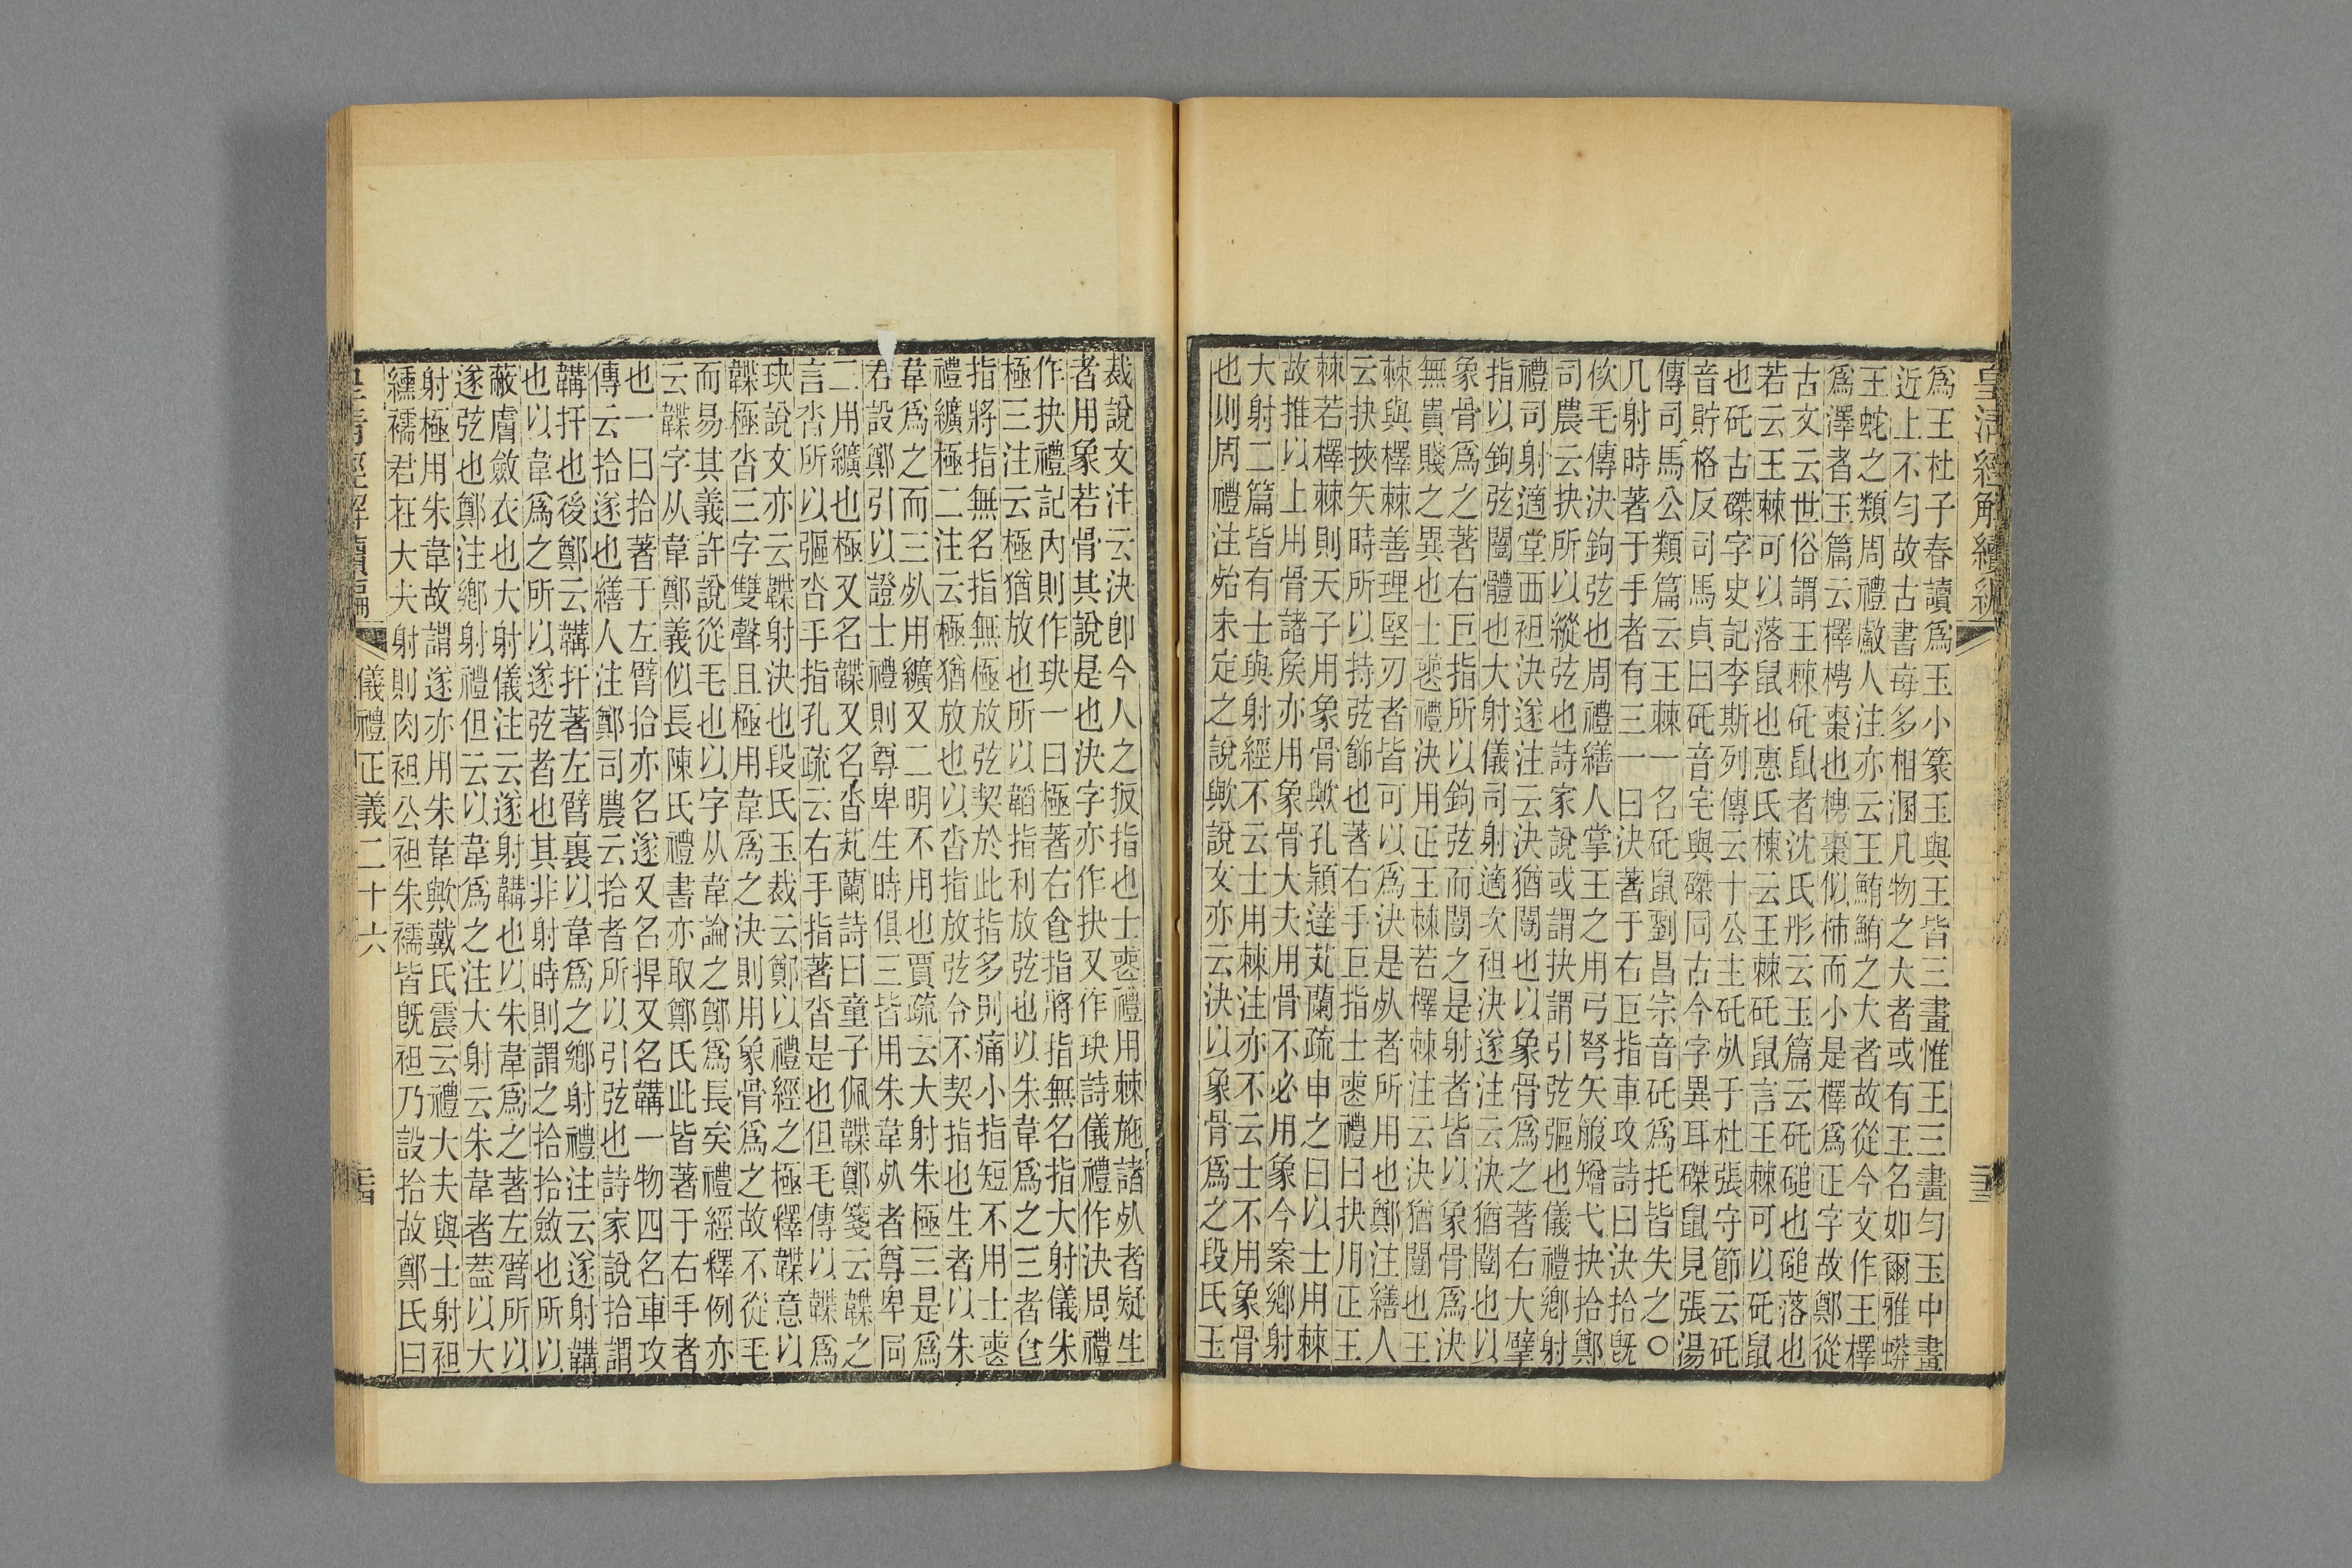 皇清經解續編
三十三
爲王杜子春讀爲玉小篆玉與王皆三畫惟王三畫勻玉中畫
近上不勻故古書每多相溷凡物之大者或有王名如爾雅蟒
王蛇之類周禮𠭖人注亦云王鮪鮪之大者故從今文作王檡
爲澤者玉篇云檡梬棗也梬棗似柿而小是檡爲正字故鄭從
古文云世俗謂王棘矺鼠者沈氏彤云玉篇云矺磓也磓落也
若云王棘可以落鼠也惠氏棟云王棘矺鼠言王棘可以矺鼠
也矺古磔字史記李斯列傳云十公主矺死于杜張守節云矺
音貯格反司馬貞曰矺音宅與磔同古今字異耳磔鼠見張湯
傳司馬公類篇云王棘一名矺鼠劉昌宗音矺爲托皆失之〇
几射時著于手者有三一曰決著于右巨指車攻詩曰決拾旣
佽毛傳決鉤弦也周禮繕人掌王之用弓弩矢箙矰弋抉拾鄭
司農云抉所以縱弦也詩家說或謂抉謂引弦彄也儀禮鄉射
禮司射適堂西袒決遂注云決猶闓也以象骨爲之著右大擘
指以鉤弦闓體也大射儀司射適次袒決遂注云決猶闓也以
象骨爲之著右巨指所以鉤弦而闓之是射者皆以象骨爲決
無貴賤之異也士喪禮決用正王棘若檡棘注云決猶闓也王
棘與檡棘善理堅刃者皆可以爲決是死者所用也鄭注繕人
云抉挾矢時所以持弦飾也著右手巨指士喪禮曰抉用正王
棘若檡棘則天子用象骨歟孔穎達芄蘭疏申之曰以士用棘
故推以上用骨諸矦亦用象骨大夫用骨不必用象今案鄉射
大射二篇皆有士與射經不云士用棘注亦不云士不用象骨
也則周禮注始未定之說歟說文亦云決以象骨爲之段氏玉
裁說文注云決卽今人之扳指也士喪禮用棘施諸死者疑生
者用象若骨其說是也決字亦作抉又作玦詩儀禮作決周禮
作抉禮記內則作玦一曰極著右食指將指無名指大射儀朱
極三注云極猶放也所以韜指利放弦也以朱韋爲之三者食
指將指無名指無極放弦契於此指多則痛小指短不用士喪
禮纊極二注云極猶放也以沓指放弦令不契指也生者以朱
韋爲之而三死用纊又二明不用也賈疏云大射朱極三是爲
君設鄭引以證士禮則尊卑生時俱三皆用朱韋死者尊卑同
二用纊也極又名韘又名沓芄蘭詩曰童子佩韘鄭箋云韘之
言沓所以彄沓手指孔疏云右手指著沓是也但毛傳以韘爲
玦說文亦云韘射決也段氏玉裁云鄭以禮經之極釋韘意以
韘極沓三字雙聲且極用韋爲之決則用象骨爲之故不從毛
而易其義許說從毛也以字从韋論之鄭爲長矣禮經釋例亦
云韘字从韋鄭義似長陳氏禮書亦取鄭氏此皆著于右手者
也一曰拾著于左臂拾亦名遂又名捍又名鞲一物四名車攻
傳云拾遂也繕人注鄭司農云拾者所以引弦也詩家說拾謂
鞲扞也後鄭云鞲扞著左臂裏以韋爲之鄉射禮注云遂射鞲
也以韋爲之所以遂弦者也其非射時則謂之拾拾斂也所以
蔽膚斂衣也大射儀注云遂射鞲也以朱韋爲之著左臂所以
遂弦也鄭注鄉射禮但云以韋爲之注大射云朱韋者蓋以大
射極用朱韋故謂遂亦用朱韋歟戴氏震云禮大夫與士射袒
纁襦君在大夫射則肉袒公袒朱襦皆旣袒乃設拾故鄭氏曰
皇清經解續編
儀禮正義二十六
三十四